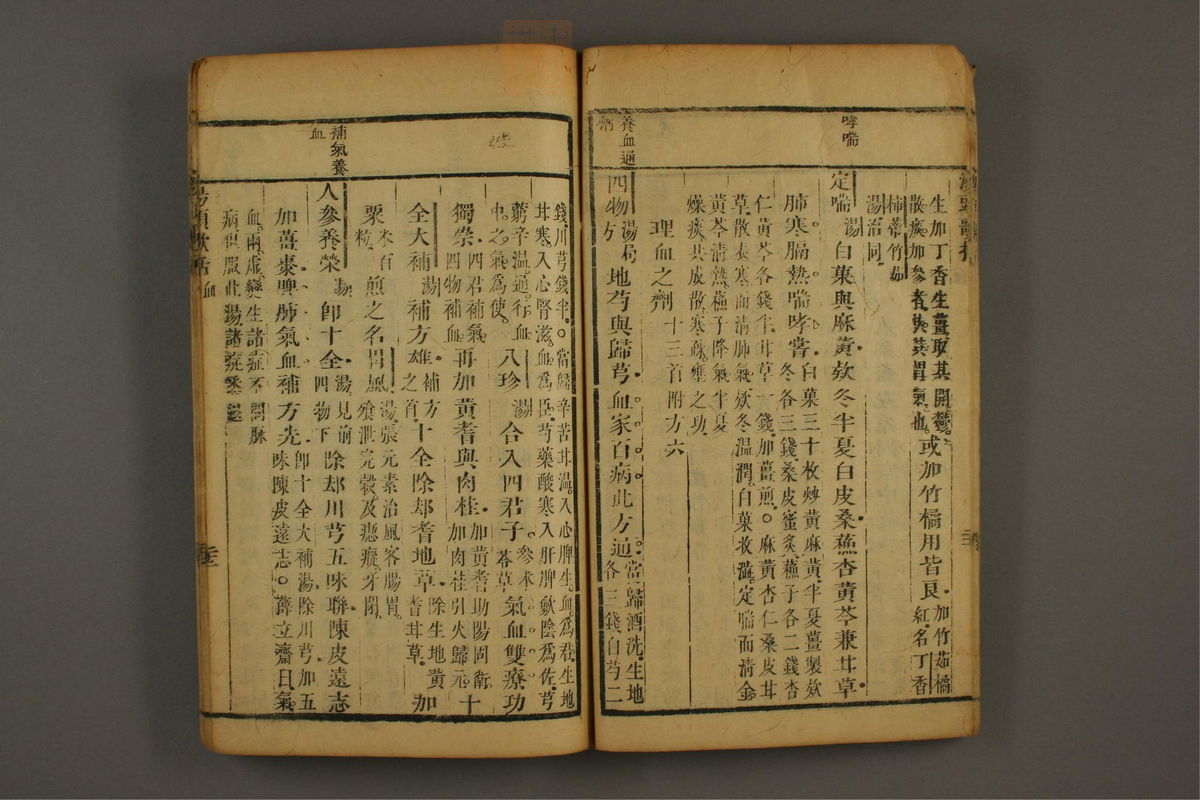 哮喘
養血通
劑
生加丁香生薑取其開鬱
散痰加參者扶其胃氣也
或加竹橘用皆良
加竹茹橘
紅名丁香
柿蒂竹茹
湯治同
定喘湯白菓與麻黃欸冬半夏白皮桑蘇杏黃芩兼甘草
肺寒膈熱喘哮嘗
白菓三十枚炒黃麻黃半夏薑製欵
冬各三錢桑皮蜜炙蘇子各二錢杏
仁黃芩各錢半甘草一錢加薑煎○麻黃杏仁桑皮甘
草散表寒而清肺氣欵冬溫潤白菓收澁定喘而清金
黃芩清熱蘇子降氣半夏
燥痰共成散寒疎壅之功
理血之劑
十三首附方六
四物湯
局方
地芍與歸芎血家百病此方通
當歸酒洗生地
各三錢白芍二
補氣養
血
錢川芎錢半○當歸辛苦甘溫入心脾生血爲君生地
甘寒入心腎滋血爲臣芍藥酸寒入肝脾歛陰爲佐芎
藭辛溫通行血
中之氣爲使
八珍湯合入四君子
參朮
苓草
氣血雙療功
獨崇
四君補氣
四物補血
再加黃耆與肉桂
加黃耆助陽固衛
加肉桂引火歸元
十
全大補湯補方雄
補方
之首
十全除却耆地草
除生地黃
耆甘草
加
粟
米百
粒
煎之名胃風
湯張元素治風客腸胃
飱泄完穀及瘛瘲牙閉
人參養榮湯卽十全
湯見前
四物下
除却川芎五味聯陳皮遠志
加薑棗脾肺氣血補方先
卽十全大補湯除川芎加五
味陳皮遠志○薛立齋曰氣
血兩虛變生諸症不問脈
病但服此湯諸症悉退
湯頭歌括
血